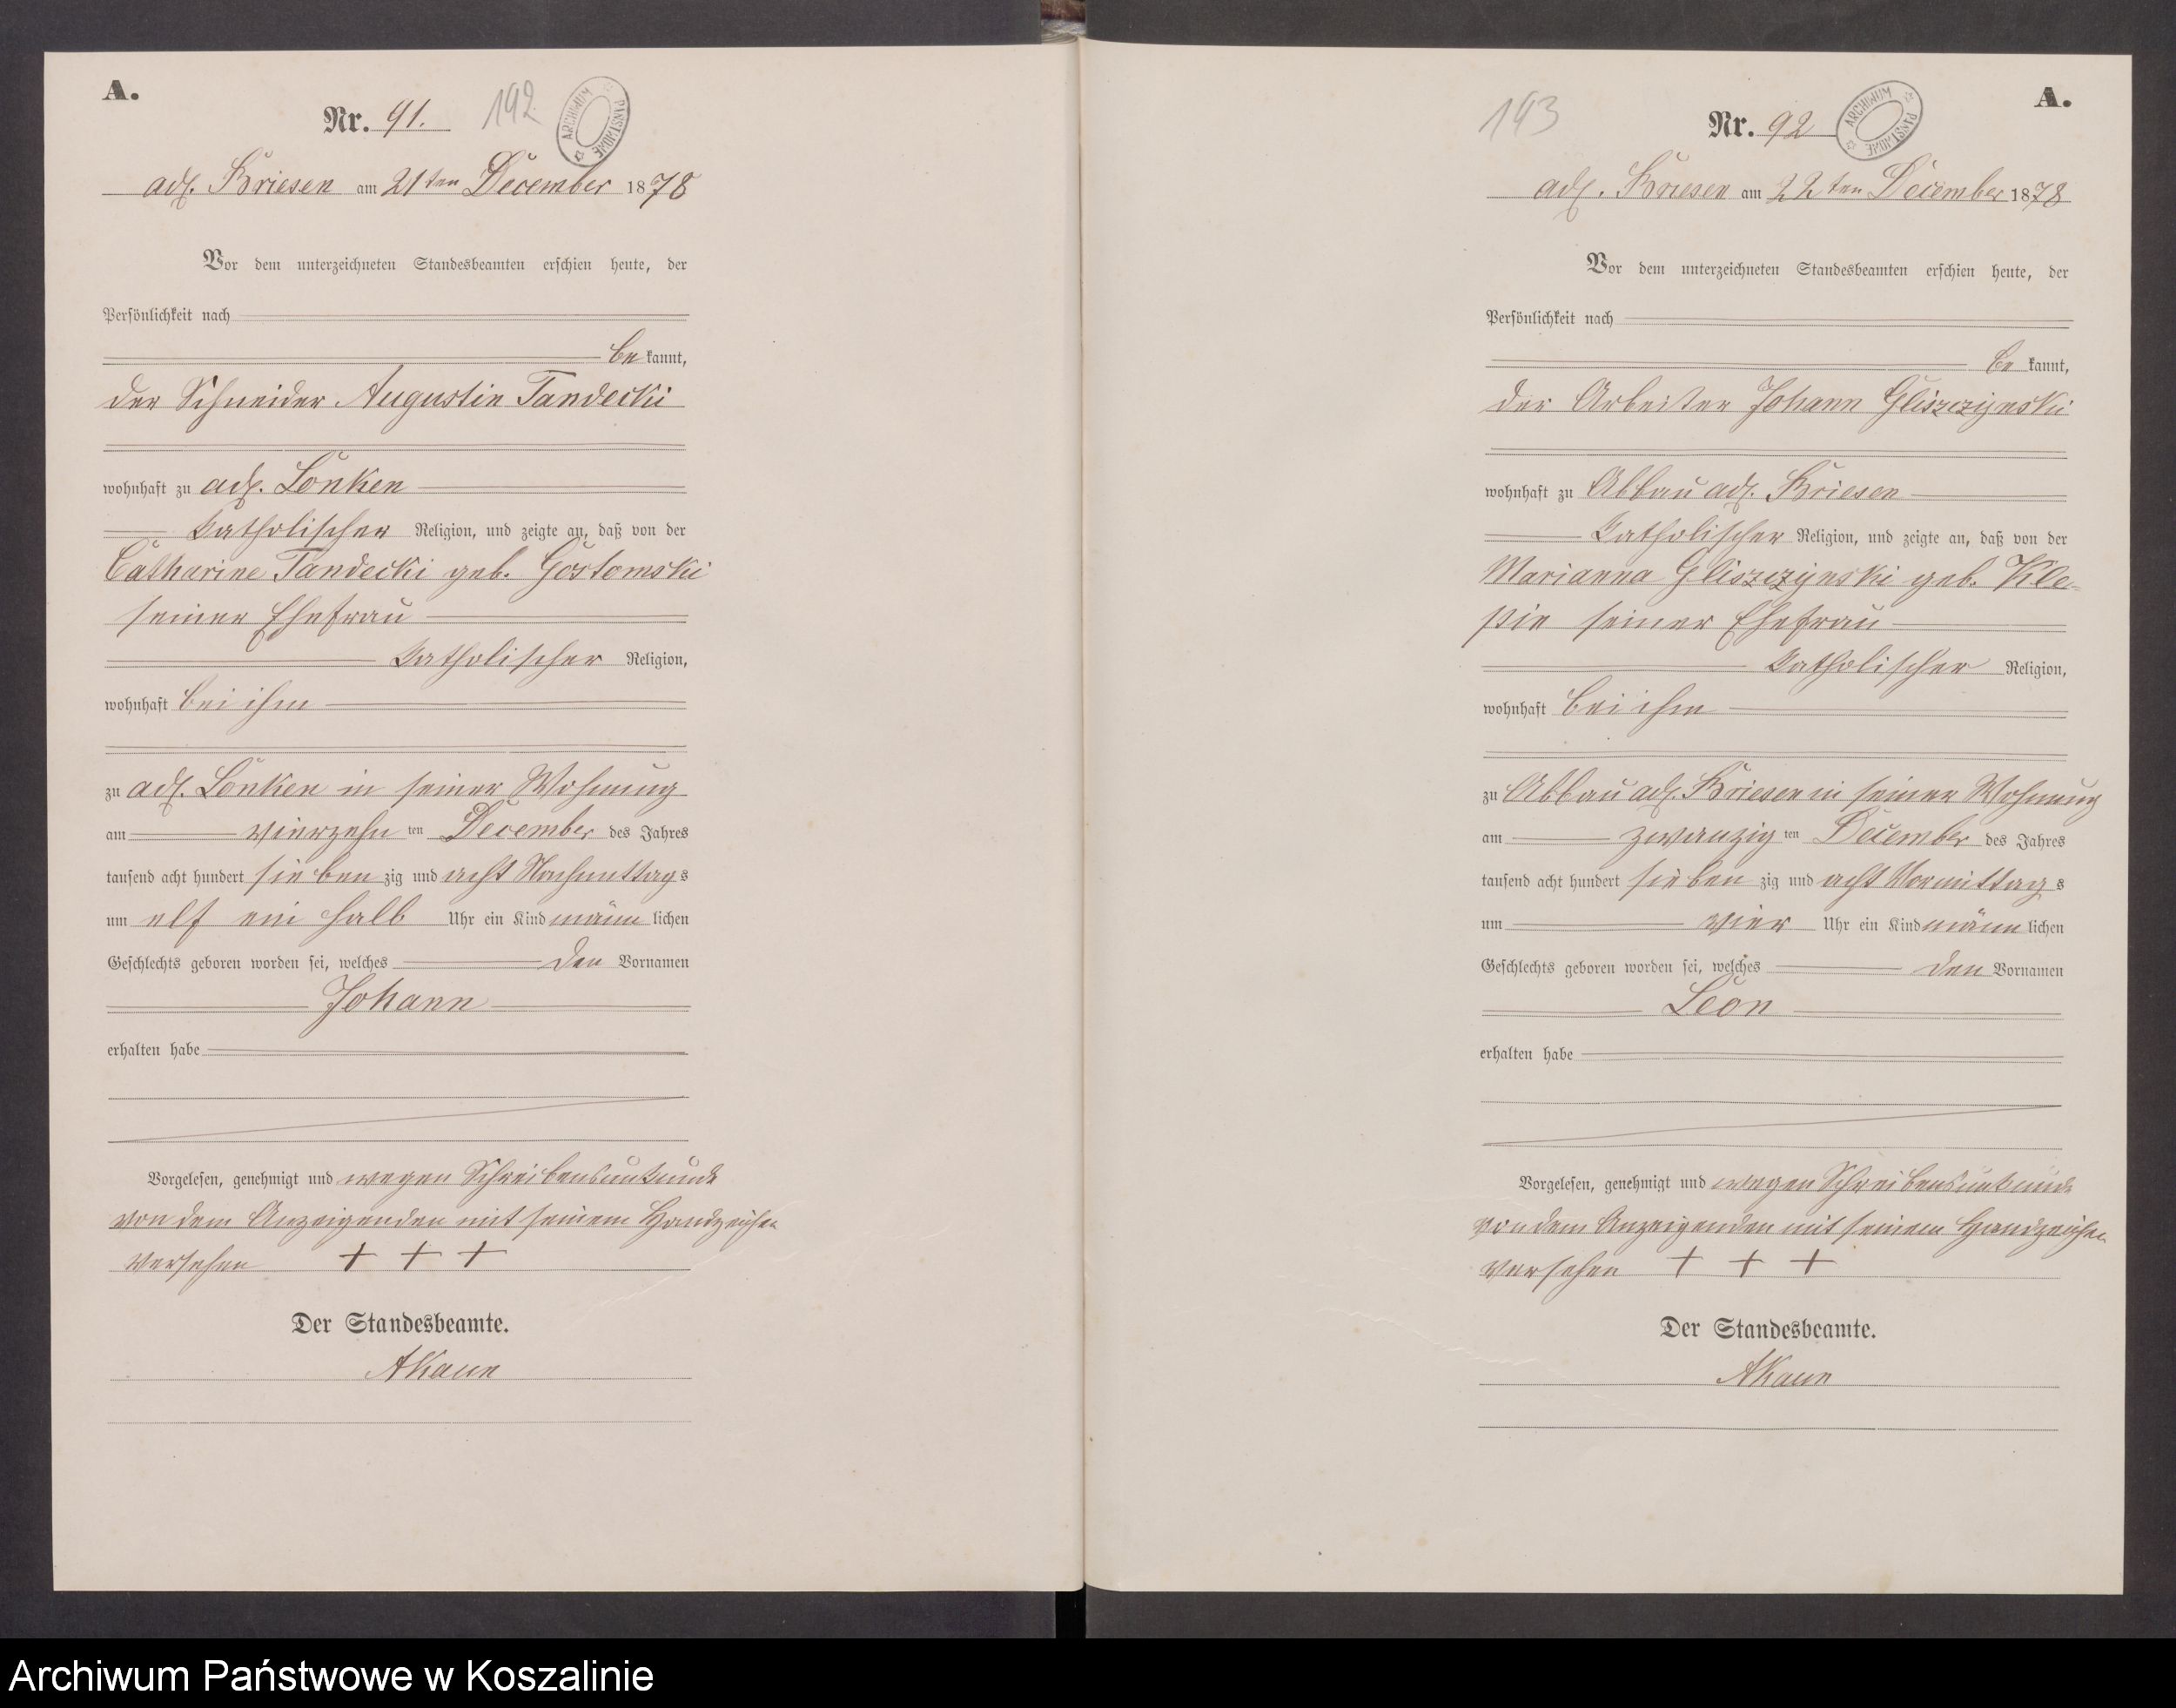 A.
Nr. 91. 192
ARCHIWUM PAŃSTWOWE
adl. Briesen am 21ten December 1878
Vor dem unterzeichneten Standesbeamten erschien heute, der
Persönlichkeit nach
be kannt,
der Schneider Augustin Tandecki
wohnhaft zu adl. Lonken
katholischer Religion, und zeigte an, daß von der
Catharine Tandecki geb. Gostomski
seiner Ehefrau
katholischer Religion,
wohnhaft bei ihm
zu adl. Lonken in seiner Wohnung
am vierzehn ten December des Jahres
tausend acht hundert sieben zig und acht Nachmittag s
um elf ein halb Uhr ein Kind männ lichen
Geschlechts geboren worden sei, welches den Vornamen
Johann
erhalten habe
Vorgelesen, genehmigt und wegen Schreibensunkunde
von dem Anzeigenden mit seinem Handzeichen
versehen + + +
Der Standesbeamte.
AKaun
A.
193 Nr. 92
ARCHIWUM PAŃSTWOWE
adl. Briesen am 22ten December 1878
Vor dem unterzeichneten Standesbeamten erschien heute, der
Persönlichkeit nach
be kannt,
der Arbeiter Johann Gliszczynski
wohnhaft zu Abbau adl. Briesen
katholischer Religion, und zeigte an, daß von der
Marianna Gliszczynski geb. Kle-
pin seiner Ehefrau
katholischer Religion,
wohnhaft bei ihm
zu Abbau adl. Briesen in seiner Wohnung
am zwanzig ten December des Jahres
tausend acht hundert sieben zig und acht Vormittag s
um vier Uhr ein Kind männ lichen
Geschlechts geboren worden sei, welches den Vornamen
Leon
erhalten habe
Vorgelesen, genehmigt und wegen Schreibensunkunde
von dem Anzeigenden mit seinem Handzeichen
versehen + + +
Der Standesbeamte.
AKaun
Archiwum Państwowe w Koszalinie